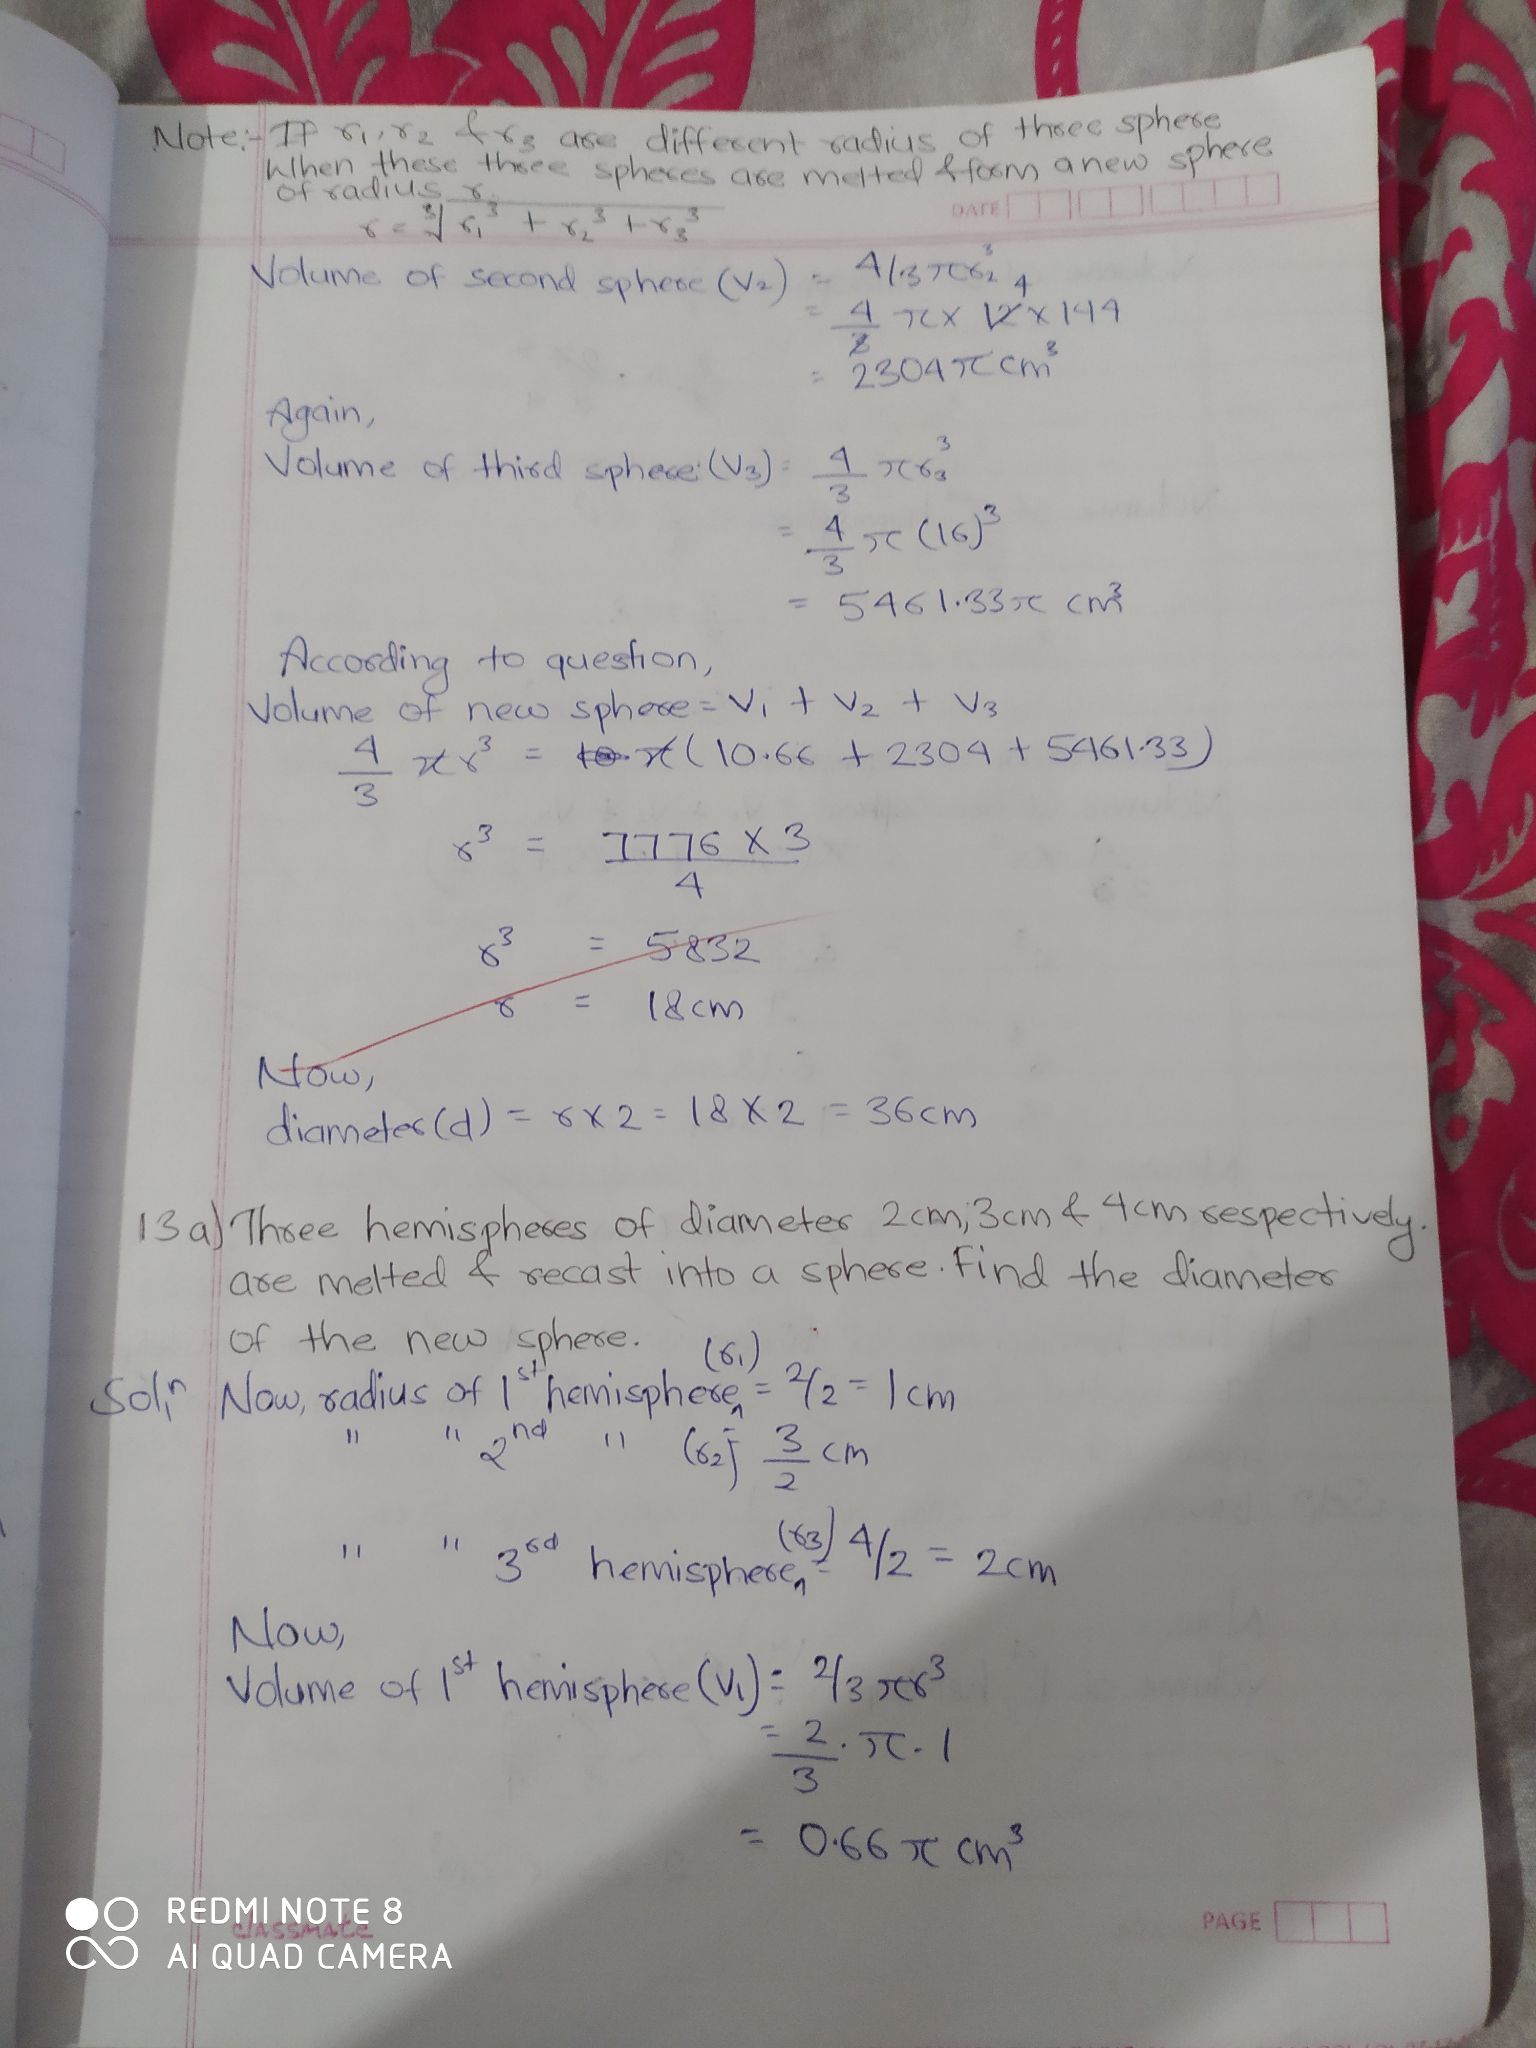 Note:- If r1, r2 & r3 are different radius of three sphere
When these three spheres are melted & form a new sphere
of radius r.
r = ∛r1³ + r2³ + r3³
DATE
Volume of second sphere (V2) = 4/3 πr2³
= 4/3 π x 12 4 x 144
= 2304 π cm³
Again,
Volume of third sphere (V3) = 4/3 πr3³
= 4/3 π (16)³
= 5461.33π cm³
According to question,
Volume of new sphere = V1 + V2 + V3
4/3 πr³ = π(10.66 + 2304 + 5461.33)
r³ = 7776 x 3 / 4
r³ = 5832
r = 18cm
Now,
diameter(d) = r x 2 = 18 x 2 = 36cm
13 a) Three hemispheres of diameter 2cm, 3cm & 4cm respectively.
are melted & recast into a sphere. Find the diameter
of the new sphere.
Solⁿ, Now, radius of 1st hemisphere (r1) = 2/2 = 1cm
" " 2nd " (r2) = 3/2 cm
" " 3rd hemisphere (r3) = 4/2 = 2cm
Now,
Volume of 1st hemisphere (V1) = 2/3 πr³
= 2/3 . π . 1
= 0.66 π cm³
classmate
PAGE
REDMI NOTE 8
AI QUAD CAMERA